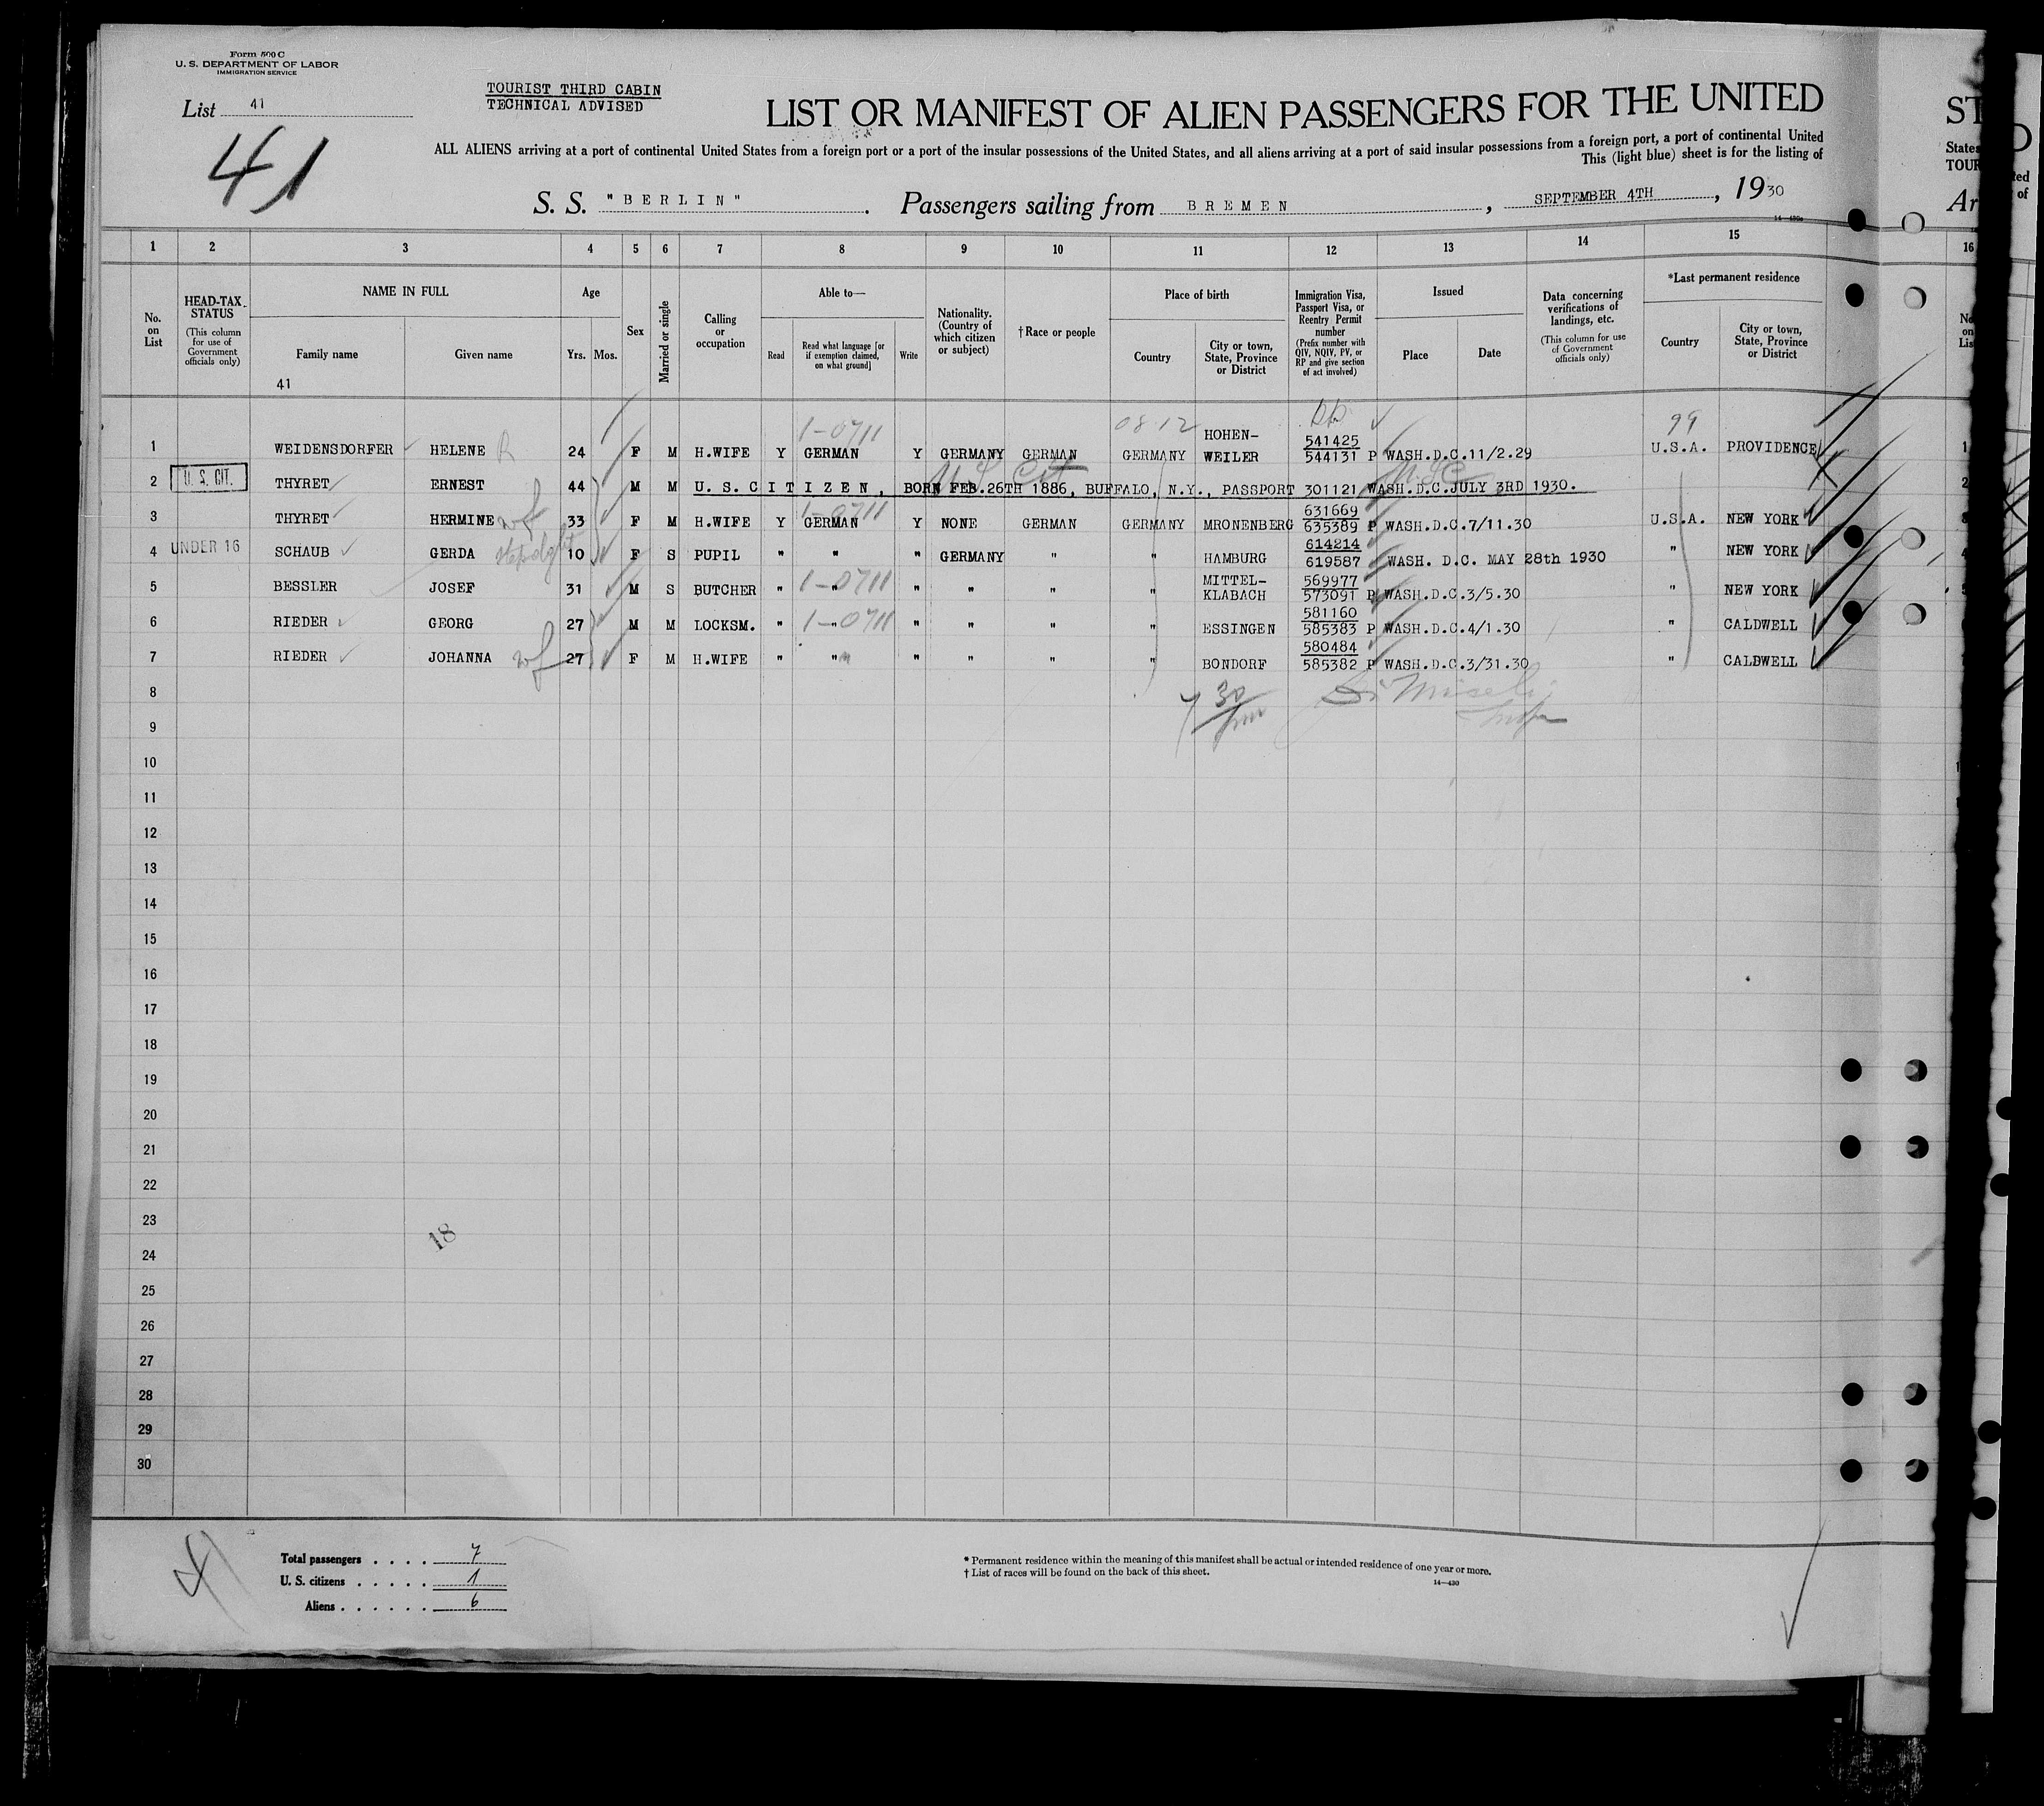 Form 500 C
U. S. DEPARTMENT OF LABOR
IMMIGRATION SERVICE
List 41
41
TOURIST THIRD CABIN
TECHNICAL ADVISED
LIST OR MANIFEST OF ALIEN PASSENGERS FOR THE UNITED
ALL ALIENS arriving at a port of continental United States from a foreign port or a port of the insular possessions of the United States, and all aliens arriving at a port of said insular possessions from a foreign port, a port of continental United
This (light blue) sheet is for the listing of
S. S. "BERLIN". Passengers sailing from BREMEN, SEPTEMBER 4TH, 1930
ST
States
TOUR
Ar
1 2 3 4 5 6 7 8 9 10 11 12 13 14 15 16
No. on List
HEAD-TAX STATUS
(This column for use of Government officials only)
NAME IN FULL
Family name
Given name
41
Age
Yrs. Mos.
Sex
Married or single
Calling or occupation
Able to—
Read
Read what language [or if exemption claimed, on what ground]
Write
Nationality. (Country of which citizen or subject)
† Race or people
Place of birth
Country
City or town, State, Province or District
Immigration Visa, Passport Visa, or Reentry Permit number
(Prefix number with QIV, NQIV, PV, or RP and give section of act involved)
Issued
Place
Date
Data concerning verifications of landings, etc.
(This column for use of Government officials only)
*Last permanent residence
Country
City or town, State, Province or District
1-0711 0812 99
1 WEIDENSDORFER HELENE R 24 F M H.WIFE Y GERMAN Y GERMANY GERMAN GERMANY HOHEN-WEILER 541425 544131 P WASH.D.C.11/2.29 U.S.A. PROVIDENCE
2 U. S. CIT. THYRET ERNEST 44 M M U. S. C I T I Z E N , BORN FEB.26TH 1886, BUFFALO, N.Y., PASSPORT 301121 WASH.D.C.JULY 3RD 1930.
1-0711
3 THYRET HERMINE wf 33 F M H.WIFE Y GERMAN Y NONE GERMAN GERMANY MRONENBERG 631669 635389 P WASH.D.C.7/11.30 U.S.A. NEW YORK
4 UNDER 16 SCHAUB GERDA stepdght 10 F S PUPIL " " " GERMANY " " HAMBURG 614214 619587 WASH. D.C. MAY 28th 1930 " NEW YORK
5 BESSLER JOSEF 31 M S BUTCHER " " 1-0711 " " " " MITTEL-KLABACH 569977 573091 P WASH.D.C.3/5.30 " NEW YORK
6 RIEDER GEORG 27 M M LOCKSM. " " 1-0711 " " " " ESSINGEN 581160 585383 P WASH.D.C.4/1.30 " CALDWELL
7 RIEDER JOHANNA wf 27 F M H.WIFE " " " " " " BONDORF 580484 585382 P WASH.D.C.3/31.30 " CALDWELL
8
7 30 pm
9
10
11
12
13
14
15
16
17
18
19
20
21
22
23
18
24
25
26
27
28
29
30
41
Total passengers . . . . 7
U. S. citizens . . . . . 1
Aliens . . . . . . 6
* Permanent residence within the meaning of this manifest shall be actual or intended residence of one year or more.
† List of races will be found on the back of this sheet.
14—430